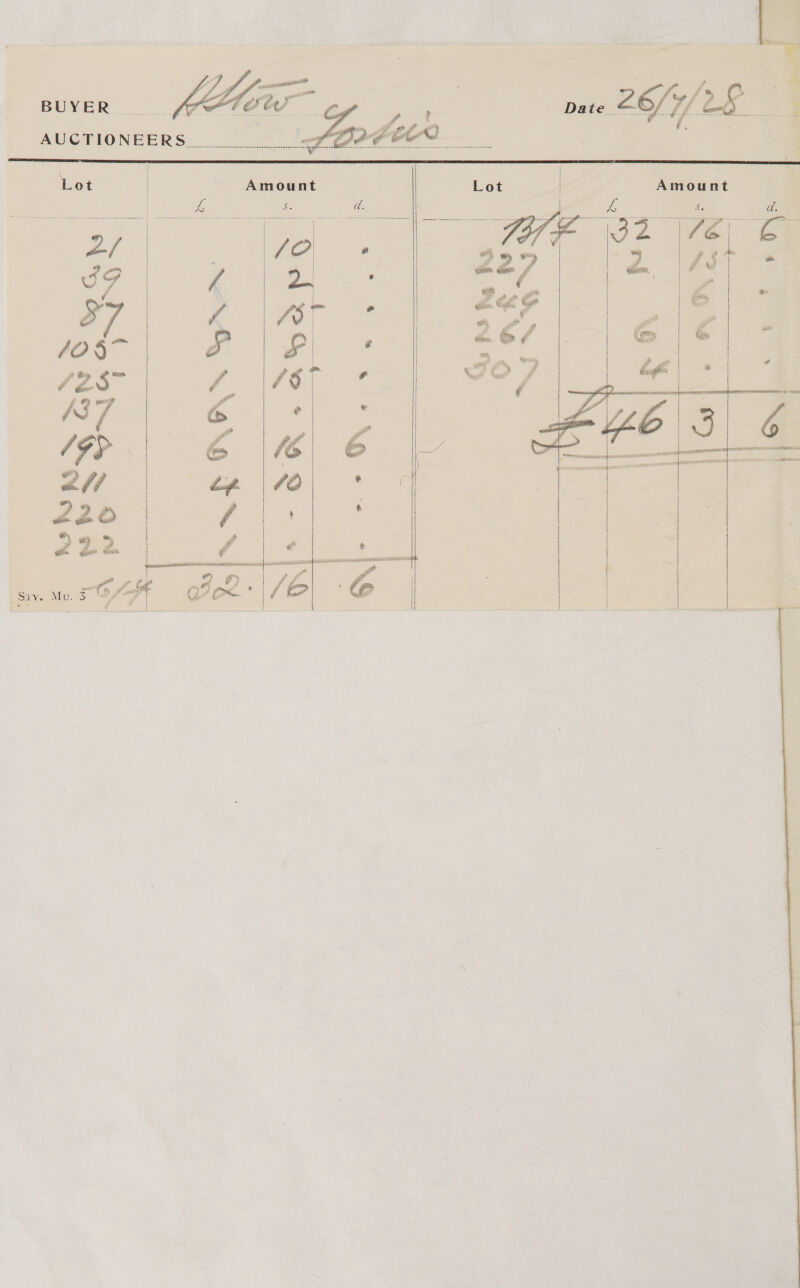 BUYER Date 26/7/28
AUCTIONEERS
Lot Amount
£ s. d.
21 10 •
39 1 2 •
87 1 15 •
105 8 8 •
125 1 15 •
137 6 • •
198 6 16 6
211 4 10 •
220 1 • •
222 1 • •
C/F 32 16 6
Lot Amount
£ s. d.
B/F 32 16 6
227 2 15 -
249 6 -
261 6 6 -
307 4 • •
£46 3 6